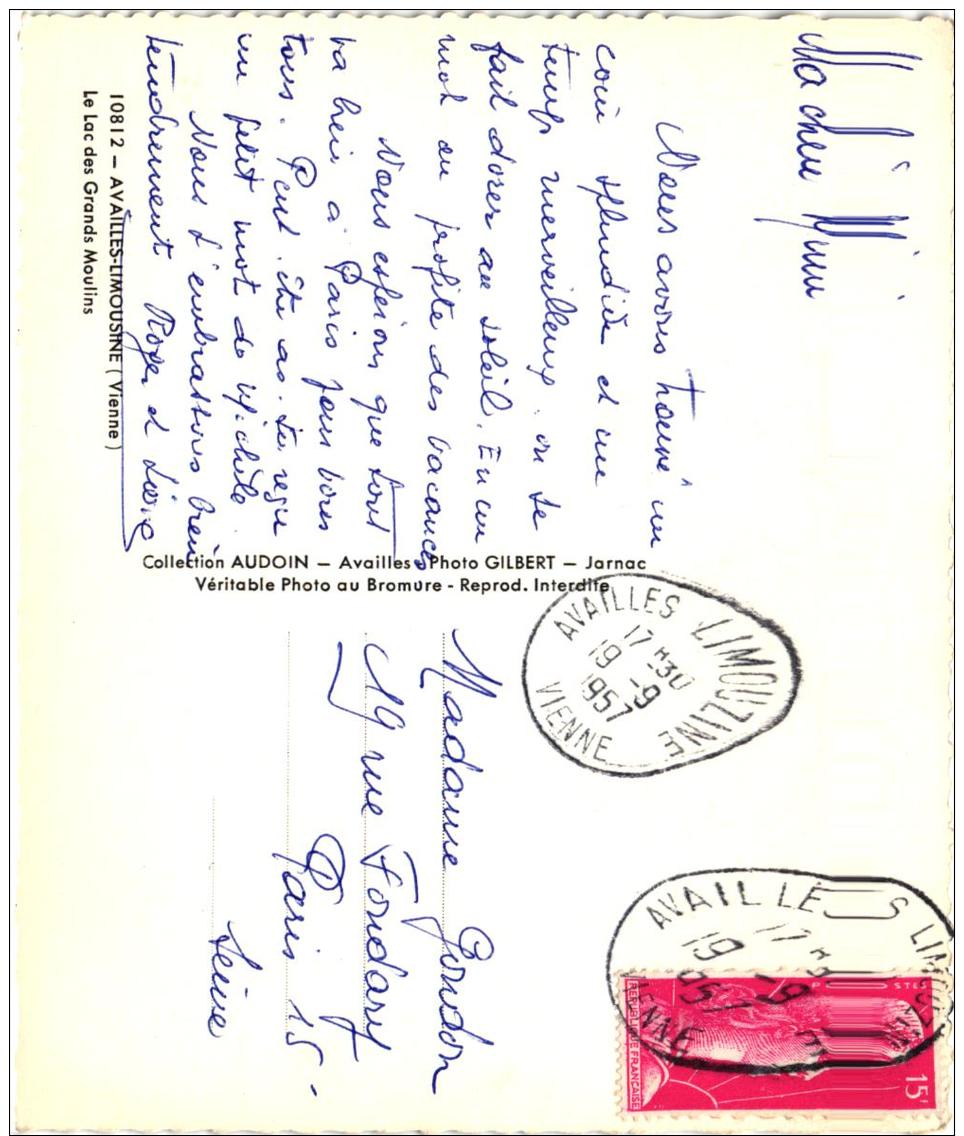 Ma chère Mimi
Nous avons trouvé un
coin splendide et un
temps merveilleux. on se
fait dorer au soleil. En un
mot on profite des vacances
Nous espérons que tout
va bien à Paris pour vous
tous. Peut-être as-tu reçu
un petit mot de Michèle.
Nous t'embrassons bien
tendrement Roger et
10812 – AVAILLES-LIMOUSINE (Vienne)
Le Lac des Grands Moulins
Collection AUDOIN – Availles - Photo GILBERT – Jarnac
Véritable Photo au Bromure - Reprod. Interdite
AVAILLES LIMOUZINE
17 H 30
19 -9
1957
VIENNE
Madame Gourdon
19 rue Fondary
Paris 15
Seine
AVAILLES LIMOUZINE
17 H 30
19 -9
1957
VIENNE
POSTES
REPUBLIQUE FRANCAISE
15F